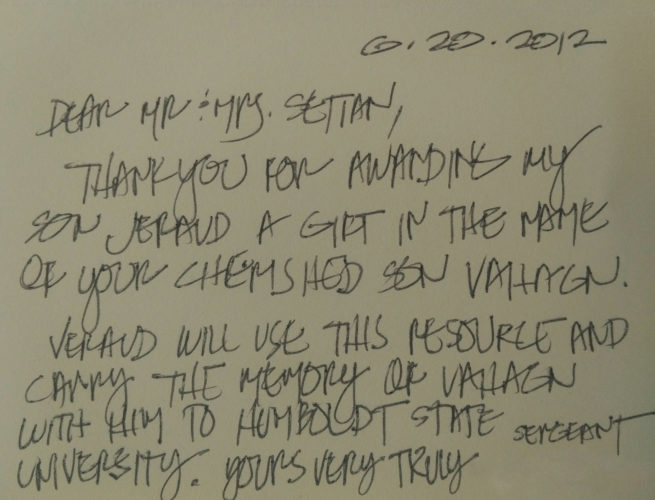 6.20.2012
DEAR MR & MRS. SETIAN,
THANK YOU FOR AWARDING MY
SON JERAUD A GIFT IN THE NAME
OF YOUR CHERISHED SON VAHAGN.
JERAUD WILL USE THIS RESOURCE AND
CARRY THE MEMORY OF VAHAGN
WITH HIM TO HUMBOLDT STATE
UNIVERSITY. YOURS VERY TRULY SERGEANT